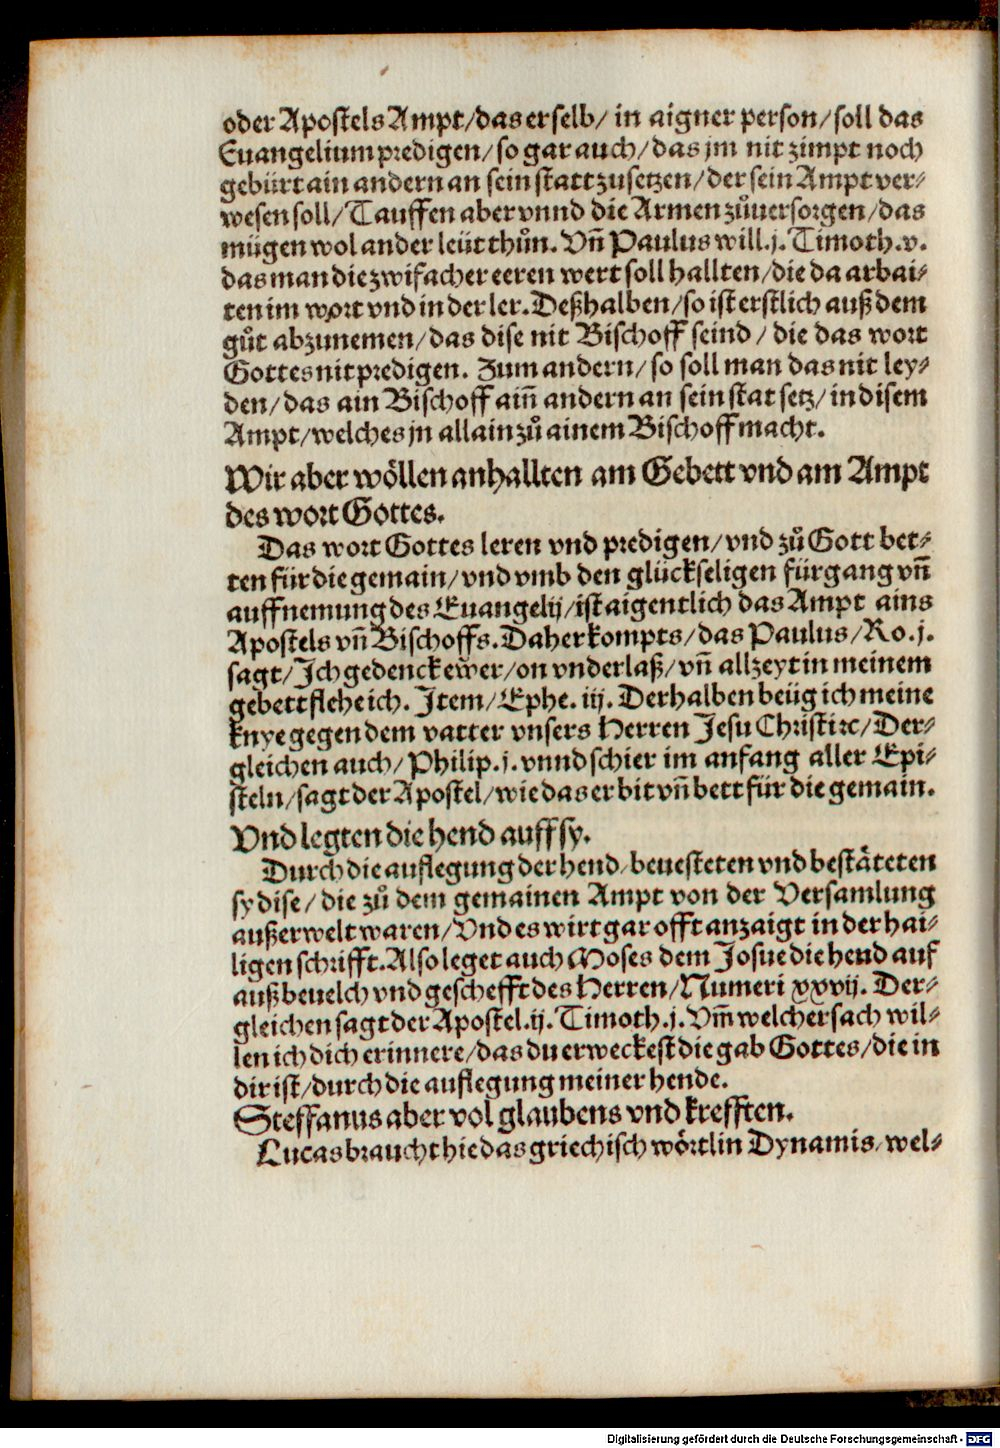 oder Apostels Ampt/das er selb/ in aigner person/soll das
Euangelium predigen/so gar auch/das jm nit zimpt noch
gebürt ain andern an sein statt zusetzen/der sein Ampt ver⸗
wesen soll/Tauffen aber vnnd die Armen zůuersorgen/das
mügen wol ander leüt thůn. Vñ Paulus will.j.Timoth.v.
das man die zwifacher eeren wert soll hallten/die da arbai⸗
ten im wort vnd in der ler. Deßhalben/so ist erstlich auß dem
gůt abzunemen/das dise nit Bischoff seind/ die das wort
Gottes nit predigen. Zum andern/so soll man das nit ley⸗
den/das ain Bischoff aiñ andern an sein stat setz/in disem
Ampt/welches jn allain zů ainem Bischoff macht.
Wir aber wöllen anhallten am Gebett vnd am Ampt
des wort Gottes.
Das wort Gottes leren vnd predigen/vnd zů Gott bet⸗
ten für die gemain/vnd vmb den glückseligen fürgang vñ
auffnemung des Euangelij/ist aigentlich das Ampt ains
Apostels vñ Bischoffs. Daher kompts/das Paulus/Ro.j.
sagt/Ich gedenck ewer/on vnderlaß/vñ allzeyt in meinem
gebett flehe ich. Item/Ephe. iij. Derhalben beüg ich meine
knye gegen dem vatter vnsers Herren Jesu Christi ꝛc/Der⸗
gleichen auch/Philip.j. vnnd schier im anfang aller Epi⸗
steln/sagt der Apostel/wie das er bit vñ bett für die gemain.
Vnd legten die hend auff sy.
Durch die auflegung der hend/beuesteten vnd bestäteten
sy dise/die zů dem gemainen Ampt von der Versamlung
außerwelt waren/Vnd es wirt gar offt anzaigt in der hai⸗
ligen schrifft. Also leget auch Moses dem Josue die hend auf
auß beuelch vnd geschefft des Herren/Numeri xxvij. Der⸗
gleichen sagt der Apostel.ij. Timoth.j. Vm̃ welcher sach wil⸗
len ich dich erinnere/das du erweckest die gab Gottes/die in
dir ist/durch die auflegung meiner hende.
Steffanus aber vol glaubens vnd krefften.
Lucas braucht hie das griechisch wörtlin Dynamis/wel⸗
Digitalisierung gefördert durch die Deutsche Forschungsgemeinschaft - DFG